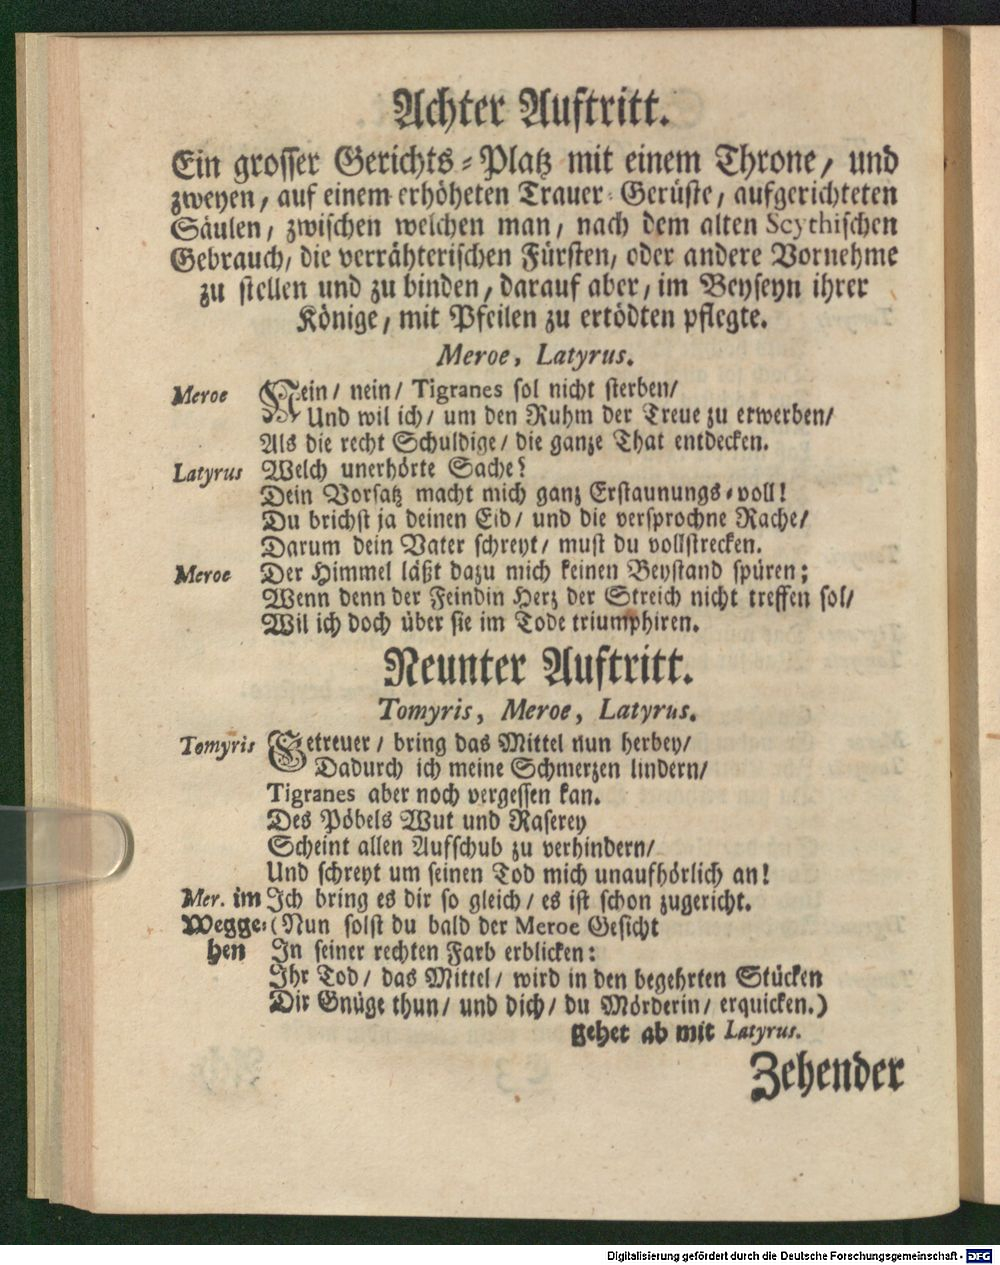 Achter Auftritt.
Ein grosser Gerichts-Platz mit einem Throne, und
zweyen, auf einem erhöheten Trauer-Gerüste, aufgerichteten
Säulen, zwischen welchen man, nach dem alten Scythischen
Gebrauch, die verrähterischen Fürsten, oder andere Vornehme
zu stellen und zu binden, darauf aber, im Beyseyn ihrer
Könige, mit Pfeilen zu ertödten pflegte.
Meroe, Latyrus.
Meroe Nein/ nein/ Tigranes sol nicht sterben/
Und wil ich/ um den Ruhm der Treue zu erwerben/
Als die recht Schuldige/ die ganze That entdecken.
Latyrus Welch unerhörte Sache?
Dein Vorsatz macht mich ganz Erstaunungs-voll!
Du brichst ja deinen Eid/ und die versprochne Rache/
Darum dein Vater schreyt/ must du vollstrecken.
Meroe Der Himmel läßt dazu mich keinen Beystand spüren;
Wenn denn der Feindin Herz der Streich nicht treffen sol/
Wil ich doch über sie im Tode triumphiren.
Neunter Auftritt.
Tomyris, Meroe, Latyrus.
Tomyris Getreuer/ bring das Mittel nun herbey/
Dadurch ich meine Schmerzen lindern/
Tigranes aber noch vergessen kan.
Des Pöbels Wut und Raserey
Scheint allen Aufschub zu verhindern/
Und schreyt um seinen Tod mich unaufhörlich an!
Mer. im Ich bring es dir so gleich/ es ist schon zugericht.
Wegge- (Nun solst du bald der Meroe Gesicht
hen In seiner rechten Farb erblicken:
Ihr Tod/ das Mittel/ wird in den begehrten Stücken
Dir Gnüge thun/ und dich/ du Mörderin/ erquicken.)
gehet ab mit Latyrus.
Zehender
Digitalisierung gefördert durch die Deutsche Forschungsgemeinschaft - DFG